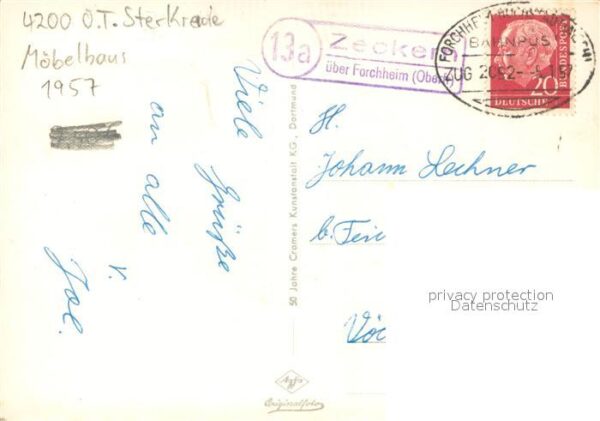 4200 O.T. Sterkrade
Möbelhaus
1957
Viele
Grüße
an alle
v.
Jol.
50 Jahre Cramers Kunstanstalt KG., Dortmund
Agfa
Originalfoto
13a
Zeckern
über Forchheim (Oberfr)
FORCHHEIM
BAHNPOST
ZUG
20
DEUTSCHE
BUNDESPOST
H.
Johann Lechner
b.
privacy protection
Datenschutz